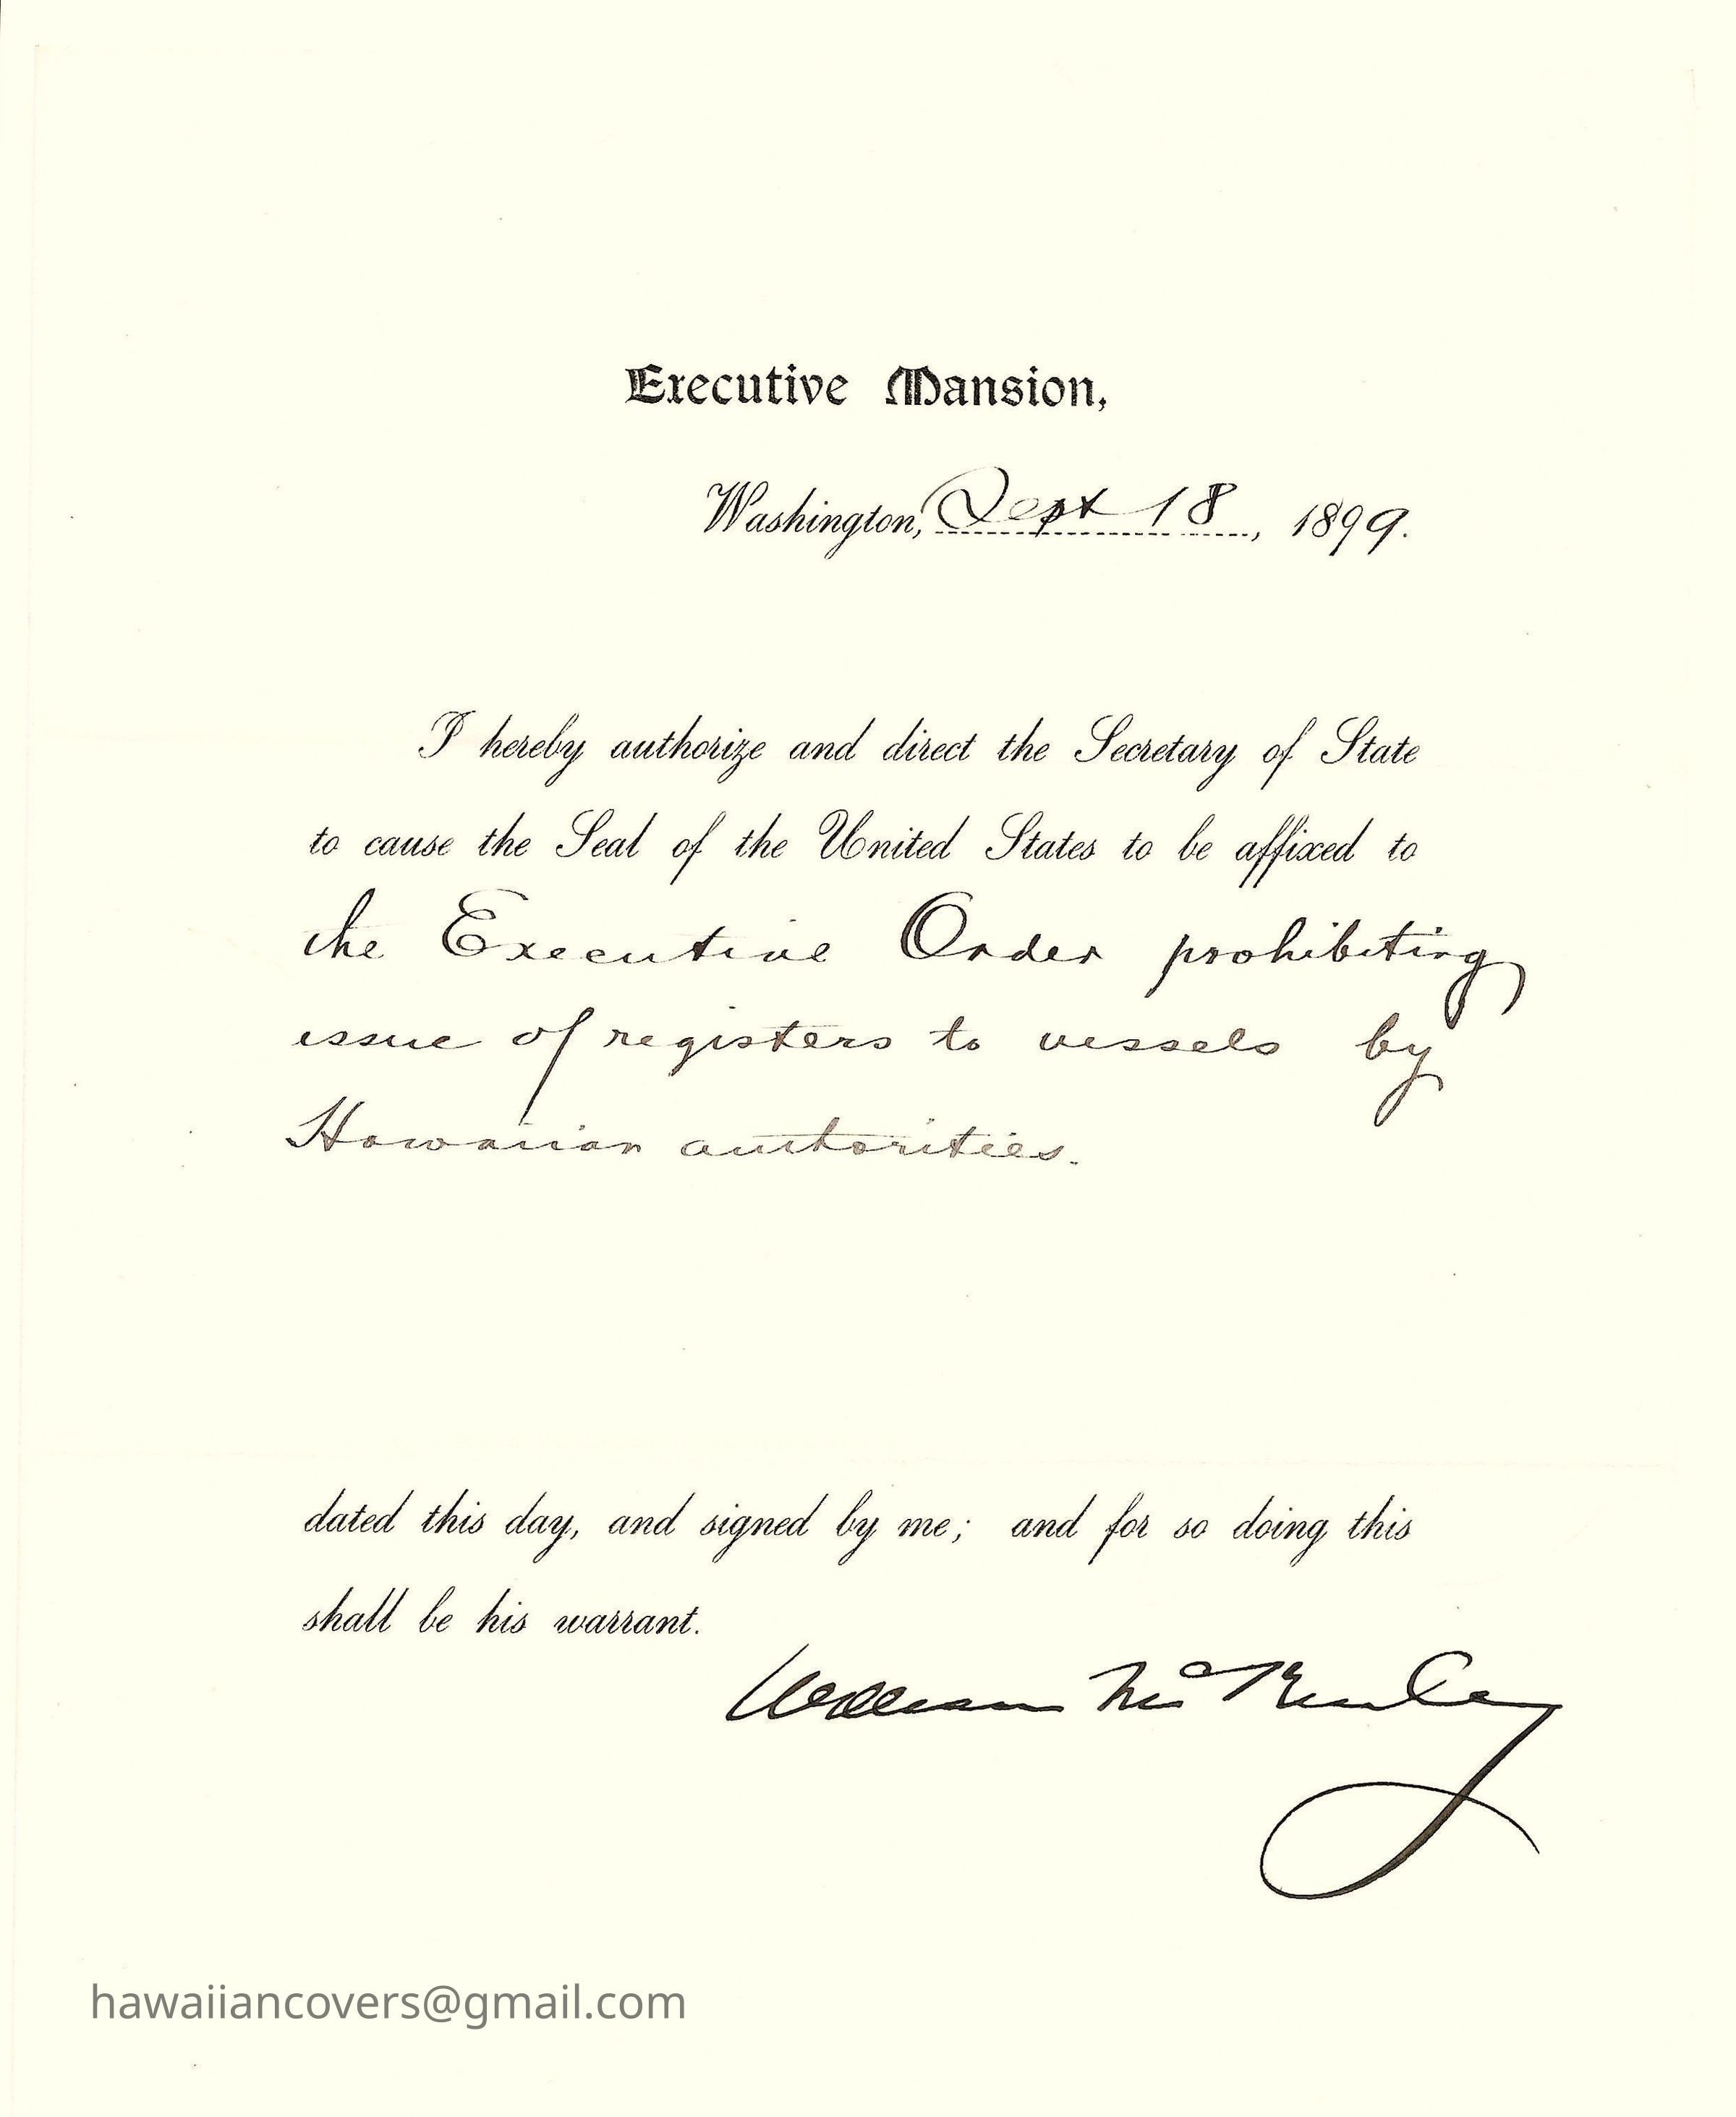 Executive Mansion,
Washington, Sept 18, 1899.
I hereby authorize and direct the Secretary of State
to cause the Seal of the United States to be affixed to
the Executive Order prohibiting
issue of registers to vessels by
Hawaiian authorities.
dated this day, and signed by me; and for so doing this
shall be his warrant.
William McKinley
hawaiiancovers@gmail.com